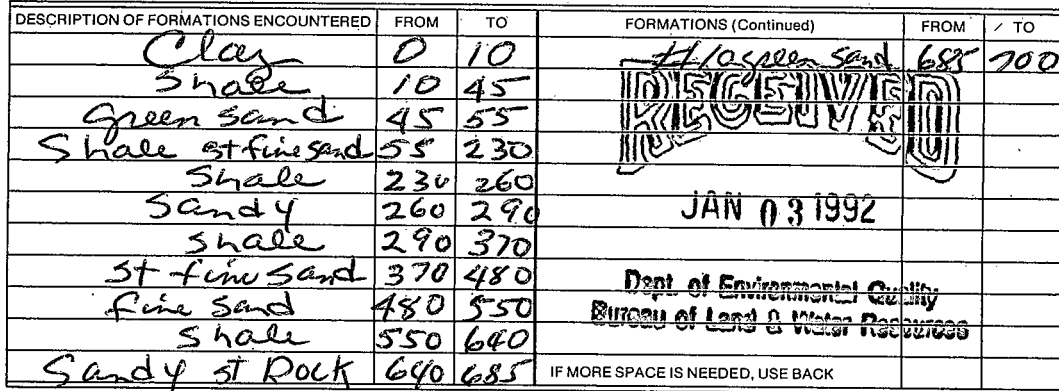 DESCRIPTION OF FORMATIONS ENCOUNTERED FROM TO
Clay 0 10
Shale 10 45
Green sand 45 55
Shale st fine sand 55 230
Shale 230 260
Sandy 260 290
Shale 290 370
st fine sand 370 480
fine sand 480 550
Shale 550 640
Sandy st Rock 640 685
FORMATIONS (Continued) FROM TO
green sand 685 700
RECEIVED
JAN 03 1992
Dept. of Environmental Quality
Bureau of Land & Water Resources
IF MORE SPACE IS NEEDED, USE BACK